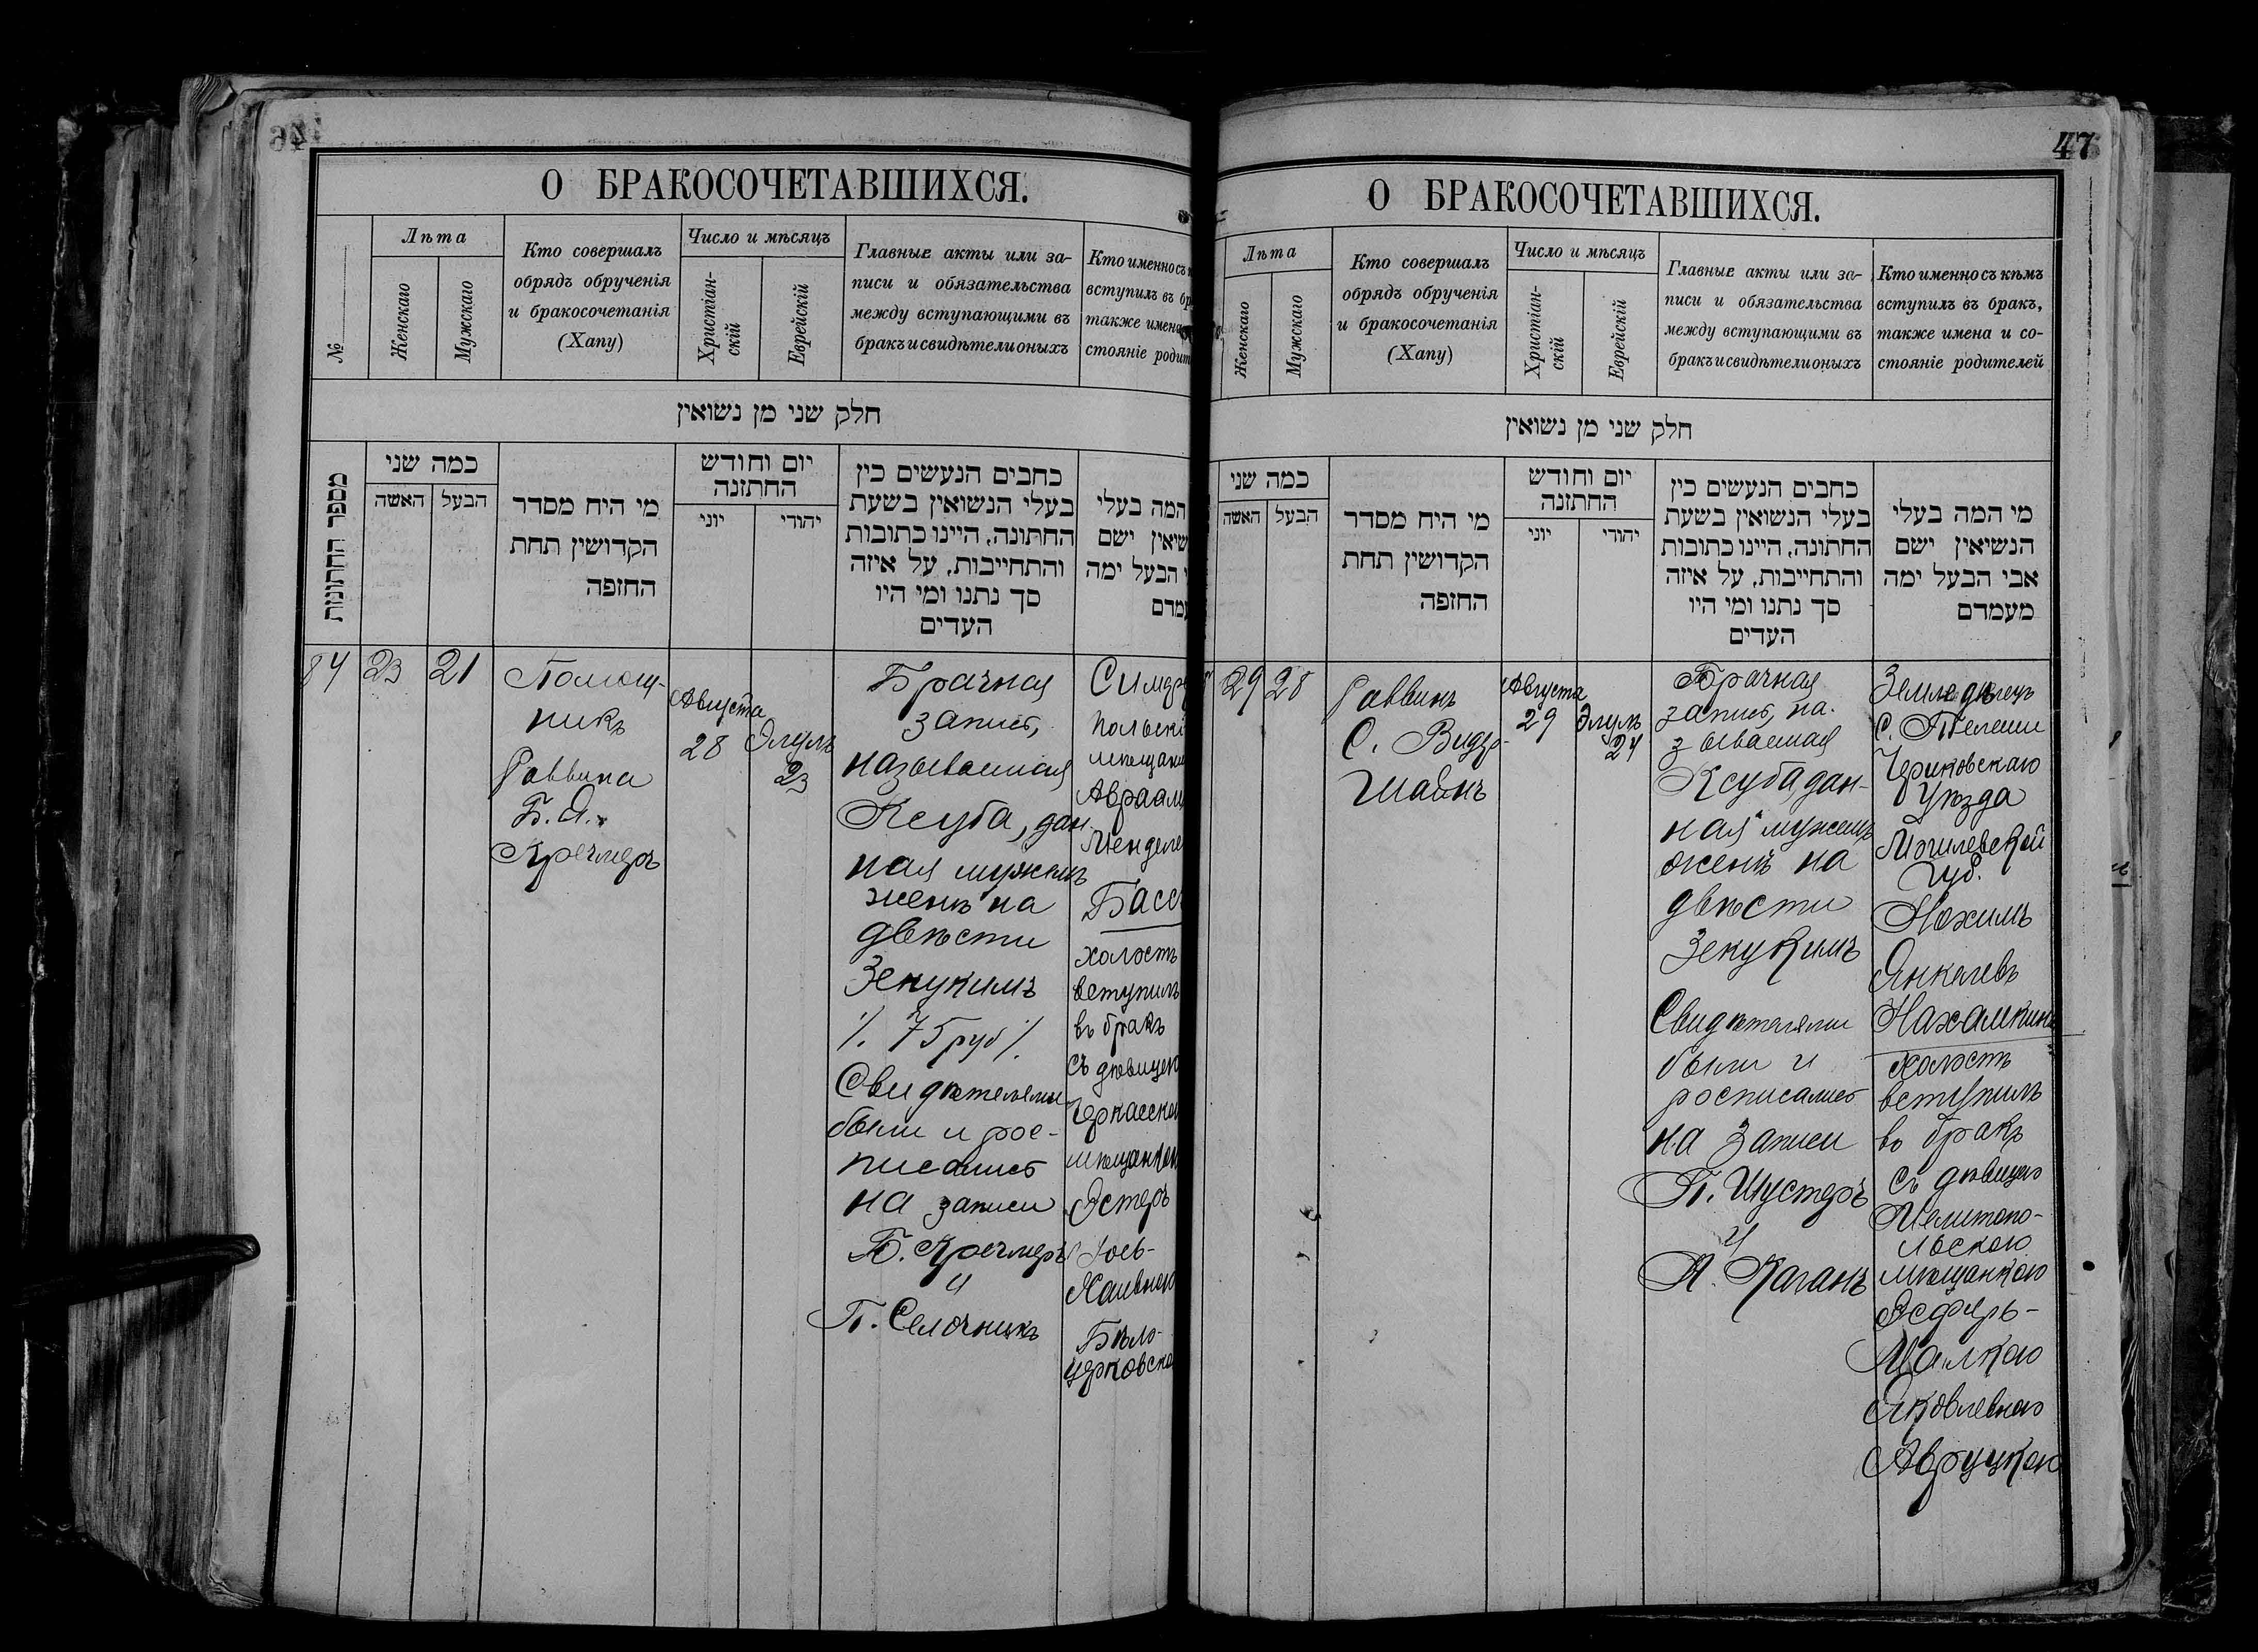 О БРАКОСОЧЕТАВШИХСЯ.
№
Лѣта
Женскаго
Мужскаго
Кто совершалъ
обрядъ обрученія
и бракосочетанія
(Хапу)
Число и мѣсяцъ
Христіан-
скій
Еврейскій
Главные акты или за-
писи и обязательства
между вступающими въ
бракъ и свидѣтели оныхъ
Кто именно съ
вступилъ въ бр
также имена
стояніе родит
חלק שני מן נשואין
מספר החתונות
כמה שני
האשה
הבעל
מי היח מסדר
הקדושין תחת
החזפה
יום וחודש
החתזנה
יוני
יהודי
כחבים הנעשים כין
בעלי הנשואין בשעת
החתונה, היינו כתובות
והתחייבות, על איזה
סך נתנו ומי היו
העדים
המה בעלי
שיאין ישם
הבעל ימה
עמדם
84
23
21
Помощ-
никъ
Раввина
Б. Я.
Кречмеръ
Августа
28
Элулъ
23
Брачная
запись,
называемая
Ксуба, дан-
ная мужемъ
женѣ на
двѣсти
Зекукимъ
/. 75 руб /.
Свидѣтелями
были и рос-
писались
на записи
Б. Кречмеръ
и
П. Селочникъ
Симфе
польскі
мѣщани
Авраам
Менделе
Басс
холостъ
вступилъ
въ бракъ
съ дѣвицею
Черкасско
мѣщанкою
Эстеръ
Хаивною
Бѣло-
церковско
47
О БРАКОСОЧЕТАВШИХСЯ.
Лѣта
Женскаго
Мужскаго
Кто совершалъ
обрядъ обрученія
и бракосочетанія
(Хапу)
Число и мѣсяцъ
Христіан-
скій
Еврейскій
Главные акты или за-
писи и обязательства
между вступающими въ
бракъ и свидѣтели оныхъ
Кто именно съ кѣмъ
вступилъ въ бракъ,
также имена и со-
стояніе родителей
חלק שני מן נשואין
כמה שני
האשה
הבעל
מי היח מסדר
הקדושין תחת
החזפה
יום וחודש
החתזנה
יוני
יהודי
כחבים הנעשים כין
בעלי הנשואין בשעת
החתונה, היינו כתובות
והתחייבות, על איזה
סך נתנו ומי היו
העדים
מי המה בעלי
הנשיאין ישם
אבי הבעל ימה
מעמדם
29
28
Раввинъ
С. Видр-
шайнъ
Августа
29
Элулъ
24
Брачная
запись, на-
зываемая
Ксуба, дан-
ная мужемъ
женѣ на
двѣсти
Зекукимъ
Свидѣтелями
были и
росписались
на записи
П. Шустеръ
и
А. Каганъ
Земледѣлецъ
с. Телеши
Чериковскаго
Уѣзда
Могилевской
Губ.
Нохимъ
Янкелевъ
Нахамкинъ
холостъ
вступилъ
въ бракъ
съ дѣвицею
Мелитопо-
льскою
мѣщанкою
Эсфирь-
Малкою
Яковлевною
Авруцкою